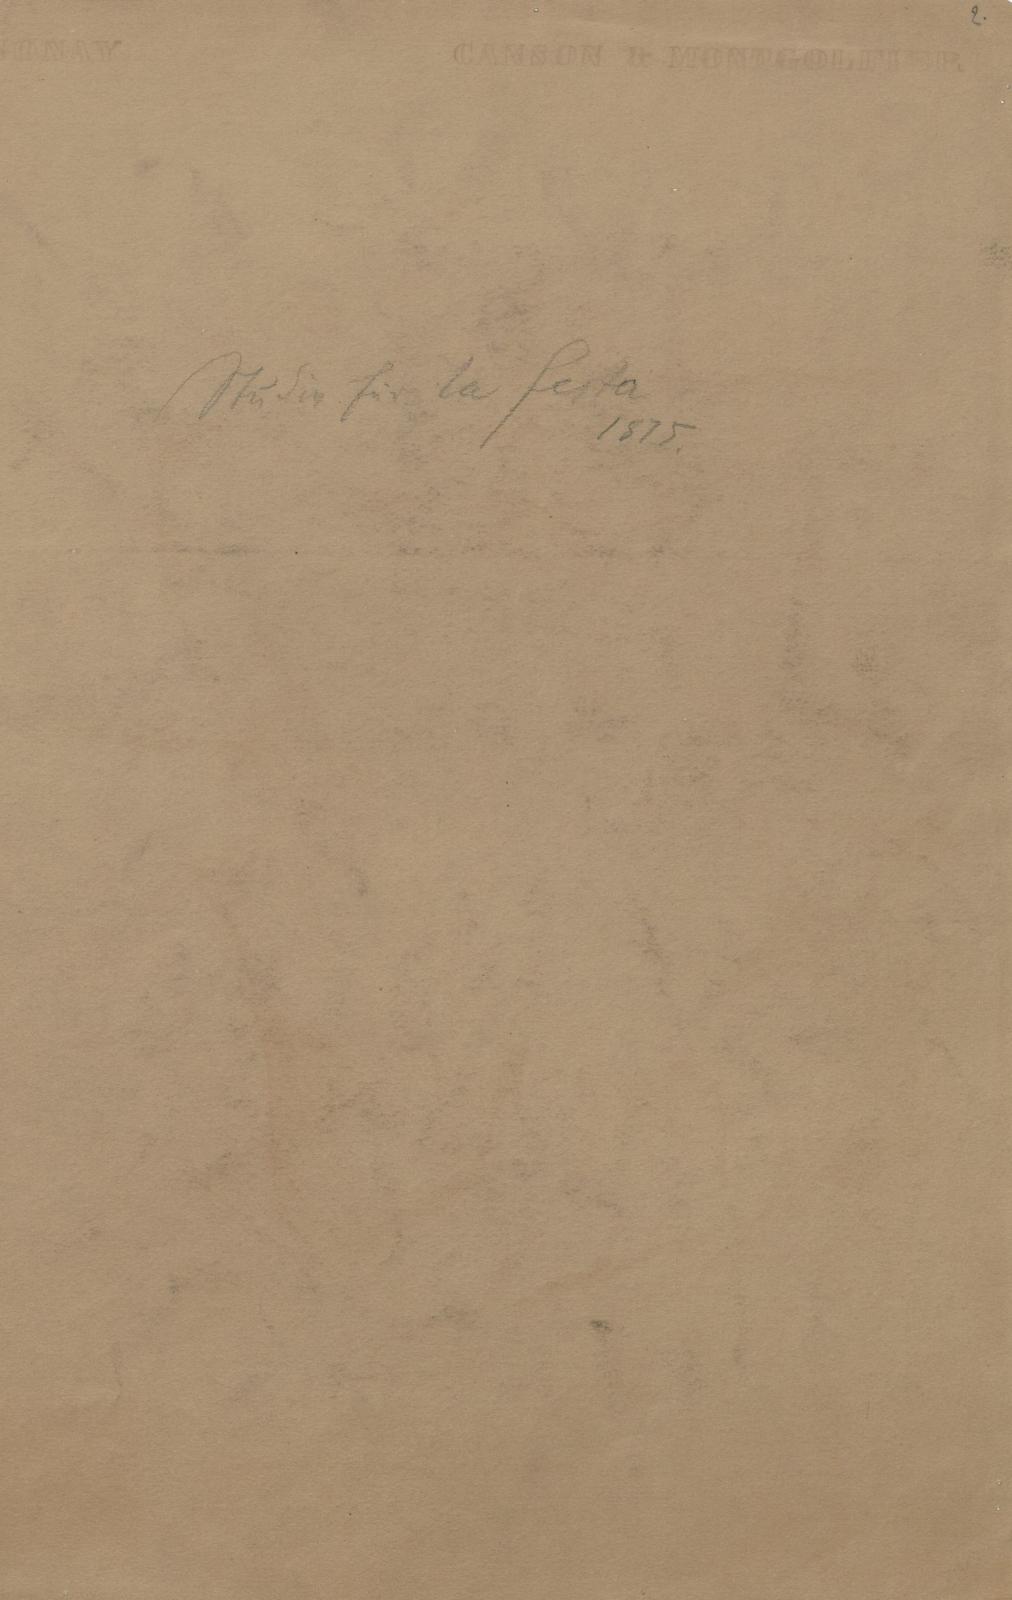 2.
CANSON & MONTGOLFIER
Studie für la festa
1875.